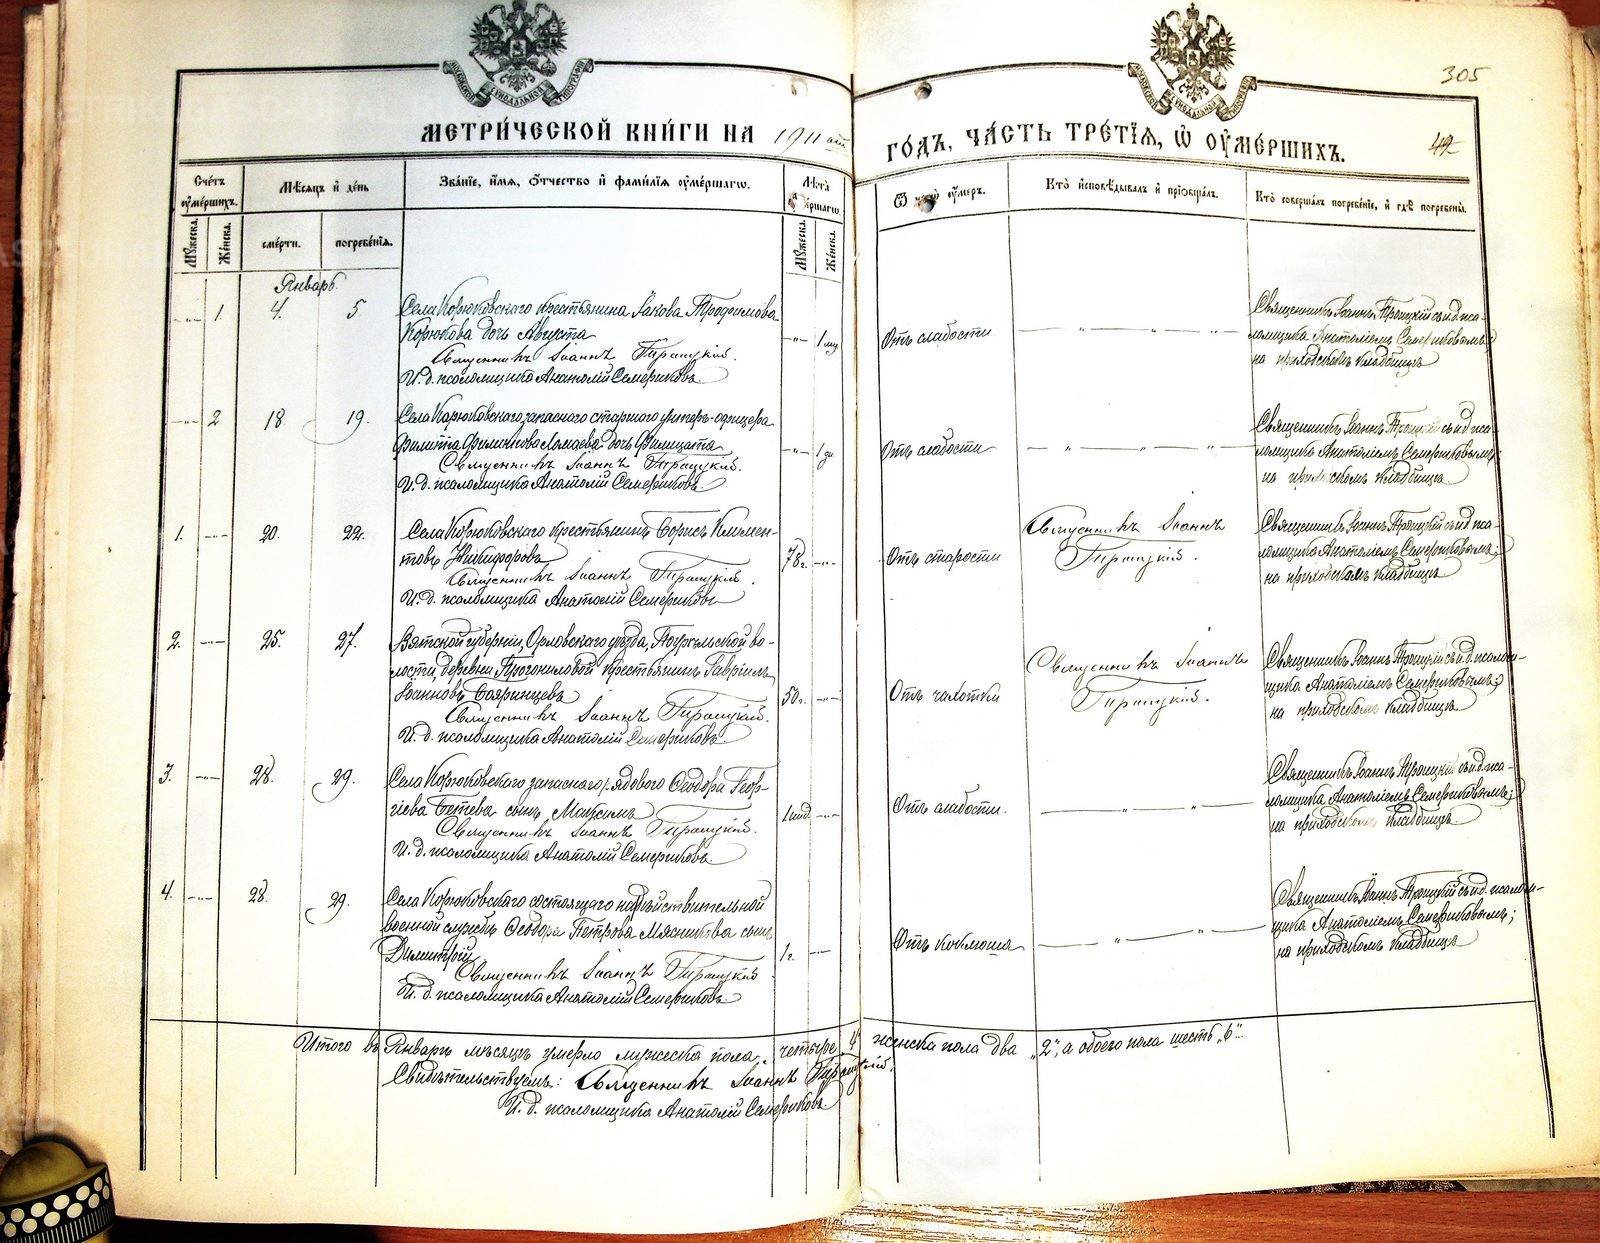 305
МЕТРИ́ЧЕСКОЙ КНИ́ГИ НА 1911 ГО́ДЪ, ЧА́СТЬ ТРЕ́ТІЯ, Ѡ҆ ОУ҆МЕ́РШИХЪ.
49
Сче́тъ оу҆ме́ршихъ.
Мѣ́сяцъ и҆ де́нь
Зва́ніе, и҆́мя, ѻ҆́тчество и҆ фами́лія оу҆ме́ршагѡ.
Лѣ́та оу҆ме́ршагѡ.
Ѿ чегѡ̀ оу҆́меръ.
Кто̀ и҆сповѣ́дывалъ и҆ пріѡбща́лъ.
Кто̀ соверша́лъ погребе́ніе, и҆ гдѣ̀ погребены̀.
Мꙋ́жеска.
Же́нска.
сме́рти.
погребе́нія.
Мꙋ́жеска.
Же́нска.
Январь.
-„- 1. 4. 5.
Села Корюковскаго крестьянина Іакова Трофимова
Корюкова дочь Августа
Священникъ Іоаннъ Троицкій.
И. д. псаломщика Анатолій Семериковъ.
-„- 1 мѣс.
Отъ слабости
Священникъ Іоаннъ Троицкій съ и. д. пса-
ломщика Анатоліемъ Семериковымъ;
на приходскомъ кладбищѣ
-„- 2 18 19.
Села Корюковскаго, запаснаго старшаго унтеръ-офицера
Филиппа Филиппова дочь Фелицата
Священникъ Іоаннъ Троицкій.
И. д. псаломщика Анатолій Семериковъ.
-„- 1 дн.
Отъ слабости
Священникъ Іоаннъ Троицкій съ и. д. пса-
ломщика Анатоліемъ Семериковымъ;
на приходскомъ кладбищѣ.
1. -„- 20. 22.
Села Корюковскаго крестьянинъ Борисъ Климен-
товъ Никифоровъ
Священникъ Іоаннъ Троицкій.
И. д. псаломщика Анатолій Семериковъ
78 г. -„-
Отъ старости
Священникъ Іоаннъ
Троицкій.
Священникъ Іоаннъ Троицкій съ и. д. пса-
ломщика Анатоліемъ Семериковымъ;
на приходскомъ кладбищѣ
2. -„- 25. 27.
Вятской губерніи, Орловскаго уѣзда, во-
лости, деревни крестьянинъ Гавріилъ
Іоанновъ Бояринцевъ
Священникъ Іоаннъ Троицкій.
И. д. псаломщика Анатолій Семериковъ.
50 г. -„-
Отъ чахотки
Священникъ Іоаннъ
Троицкій.
Священникъ Іоаннъ Троицкій съ и. д. псалом-
щика Анатоліемъ Семериковымъ;
на приходскомъ кладбищѣ.
3. -„- 28. 29.
Села Корюковскаго запаснаго рядового Ѳеодора Геор-
гіева Бетева сынъ Максимъ
Священникъ Іоаннъ Троицкій.
И. д. псаломщика Анатолій Семериковъ.
-„-
Отъ слабости.
Священникъ Іоаннъ Троицкій съ и. д. пса-
ломщика Анатоліемъ Семериковымъ;
на приходскомъ кладбищѣ.
4. -„- 28. 29.
Села Корюковскаго состоящаго на дѣйствительной
военной службѣ Ѳеодора Петрова Мясникова сынъ
Димитрій
Священникъ Іоаннъ Троицкій
И. д. псаломщика Анатолій Семериковъ.
1 г. -„-
Отъ коклюша
Священникъ Іоаннъ Троицкій съ и. д. псалом-
щика Анатоліемъ Семериковымъ;
на приходскомъ кладбищѣ
Итого въ Январѣ мѣсяцѣ умерло мужеска пола четыре „4 женска пола два „2“, а обоего пола шесть „6“
Свидѣтельствуемъ: Священникъ Іоаннъ Троицкій.
И. д. псаломщика Анатолій Семериковъ